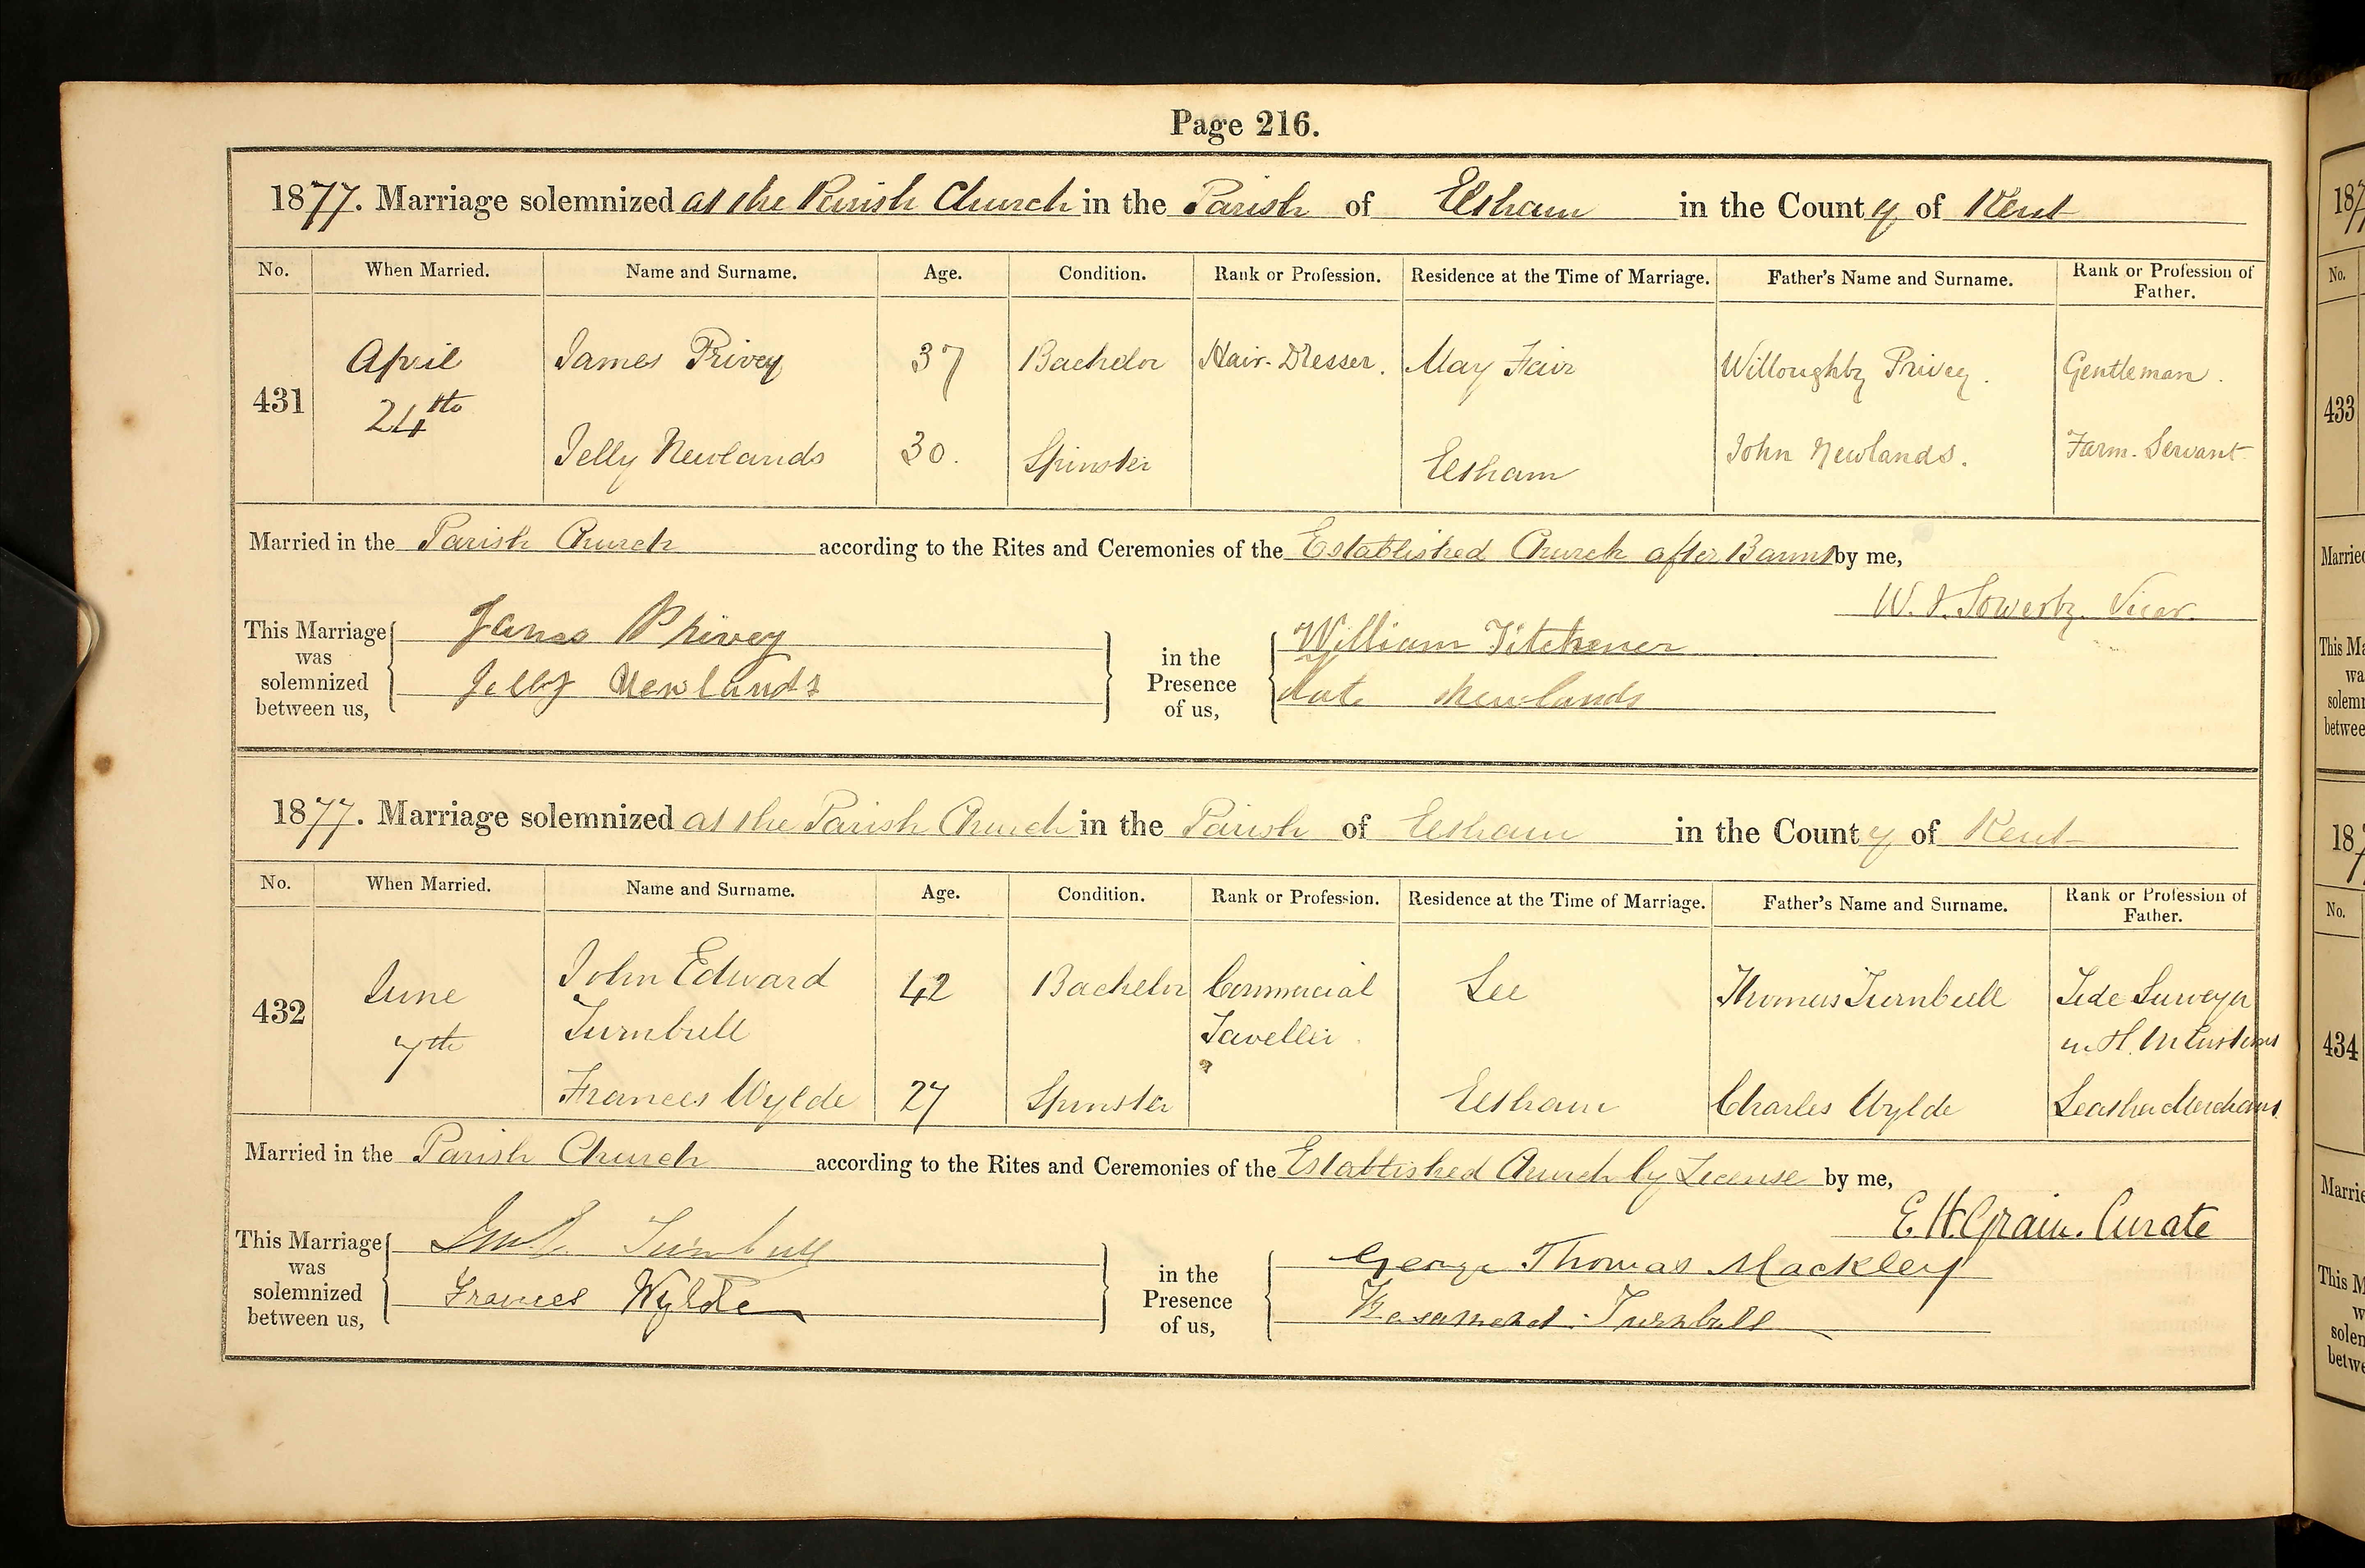 Page 216.
1877. Marriage solemnized at the Parish Church in the Parish of Eltham in the County of Kent
No. When Married. Name and Surname. Age. Condition. Rank or Profession. Residence at the Time of Marriage. Father's Name and Surname. Rank or Profession of Father.
431 April 24th James Privey 37 Bachelor Hair-Dresser. May Fair Willoughby Privey. Gentleman.
Jelly Newlands 30. Spinster Eltham John Newlands. Farm-Servant
Married in the Parish Church according to the Rites and Ceremonies of the Established Church after Banns by me,
W. J. Sowerby. Vicar.
This Marriage was solemnized between us,
James Privey
Jelly Newlands
in the Presence of us,
William Titchener
Newlands
1877. Marriage solemnized at the Parish Church in the Parish of Eltham in the County of Kent
No. When Married. Name and Surname. Age. Condition. Rank or Profession. Residence at the Time of Marriage. Father's Name and Surname. Rank or Profession of Father.
432 June 7th John Edward Turnbull 42 Bachelor Commercial Traveller Lee Thomas Turnbull Tide Surveyor in H.M Customs
Frances Wylde 27 Spinster Eltham Charles Wylde Leather Merchant
Married in the Parish Church according to the Rites and Ceremonies of the Established Church by License by me,
E. H. Grain. Curate
This Marriage was solemnized between us,
Turnbull
Frances Wylde
in the Presence of us,
George Thomas Mackley
Turnbull
187
No.
433
Married
This Ma
was
solemn
betwee
187
No.
434
Marrie
This M
w
solen
betwe